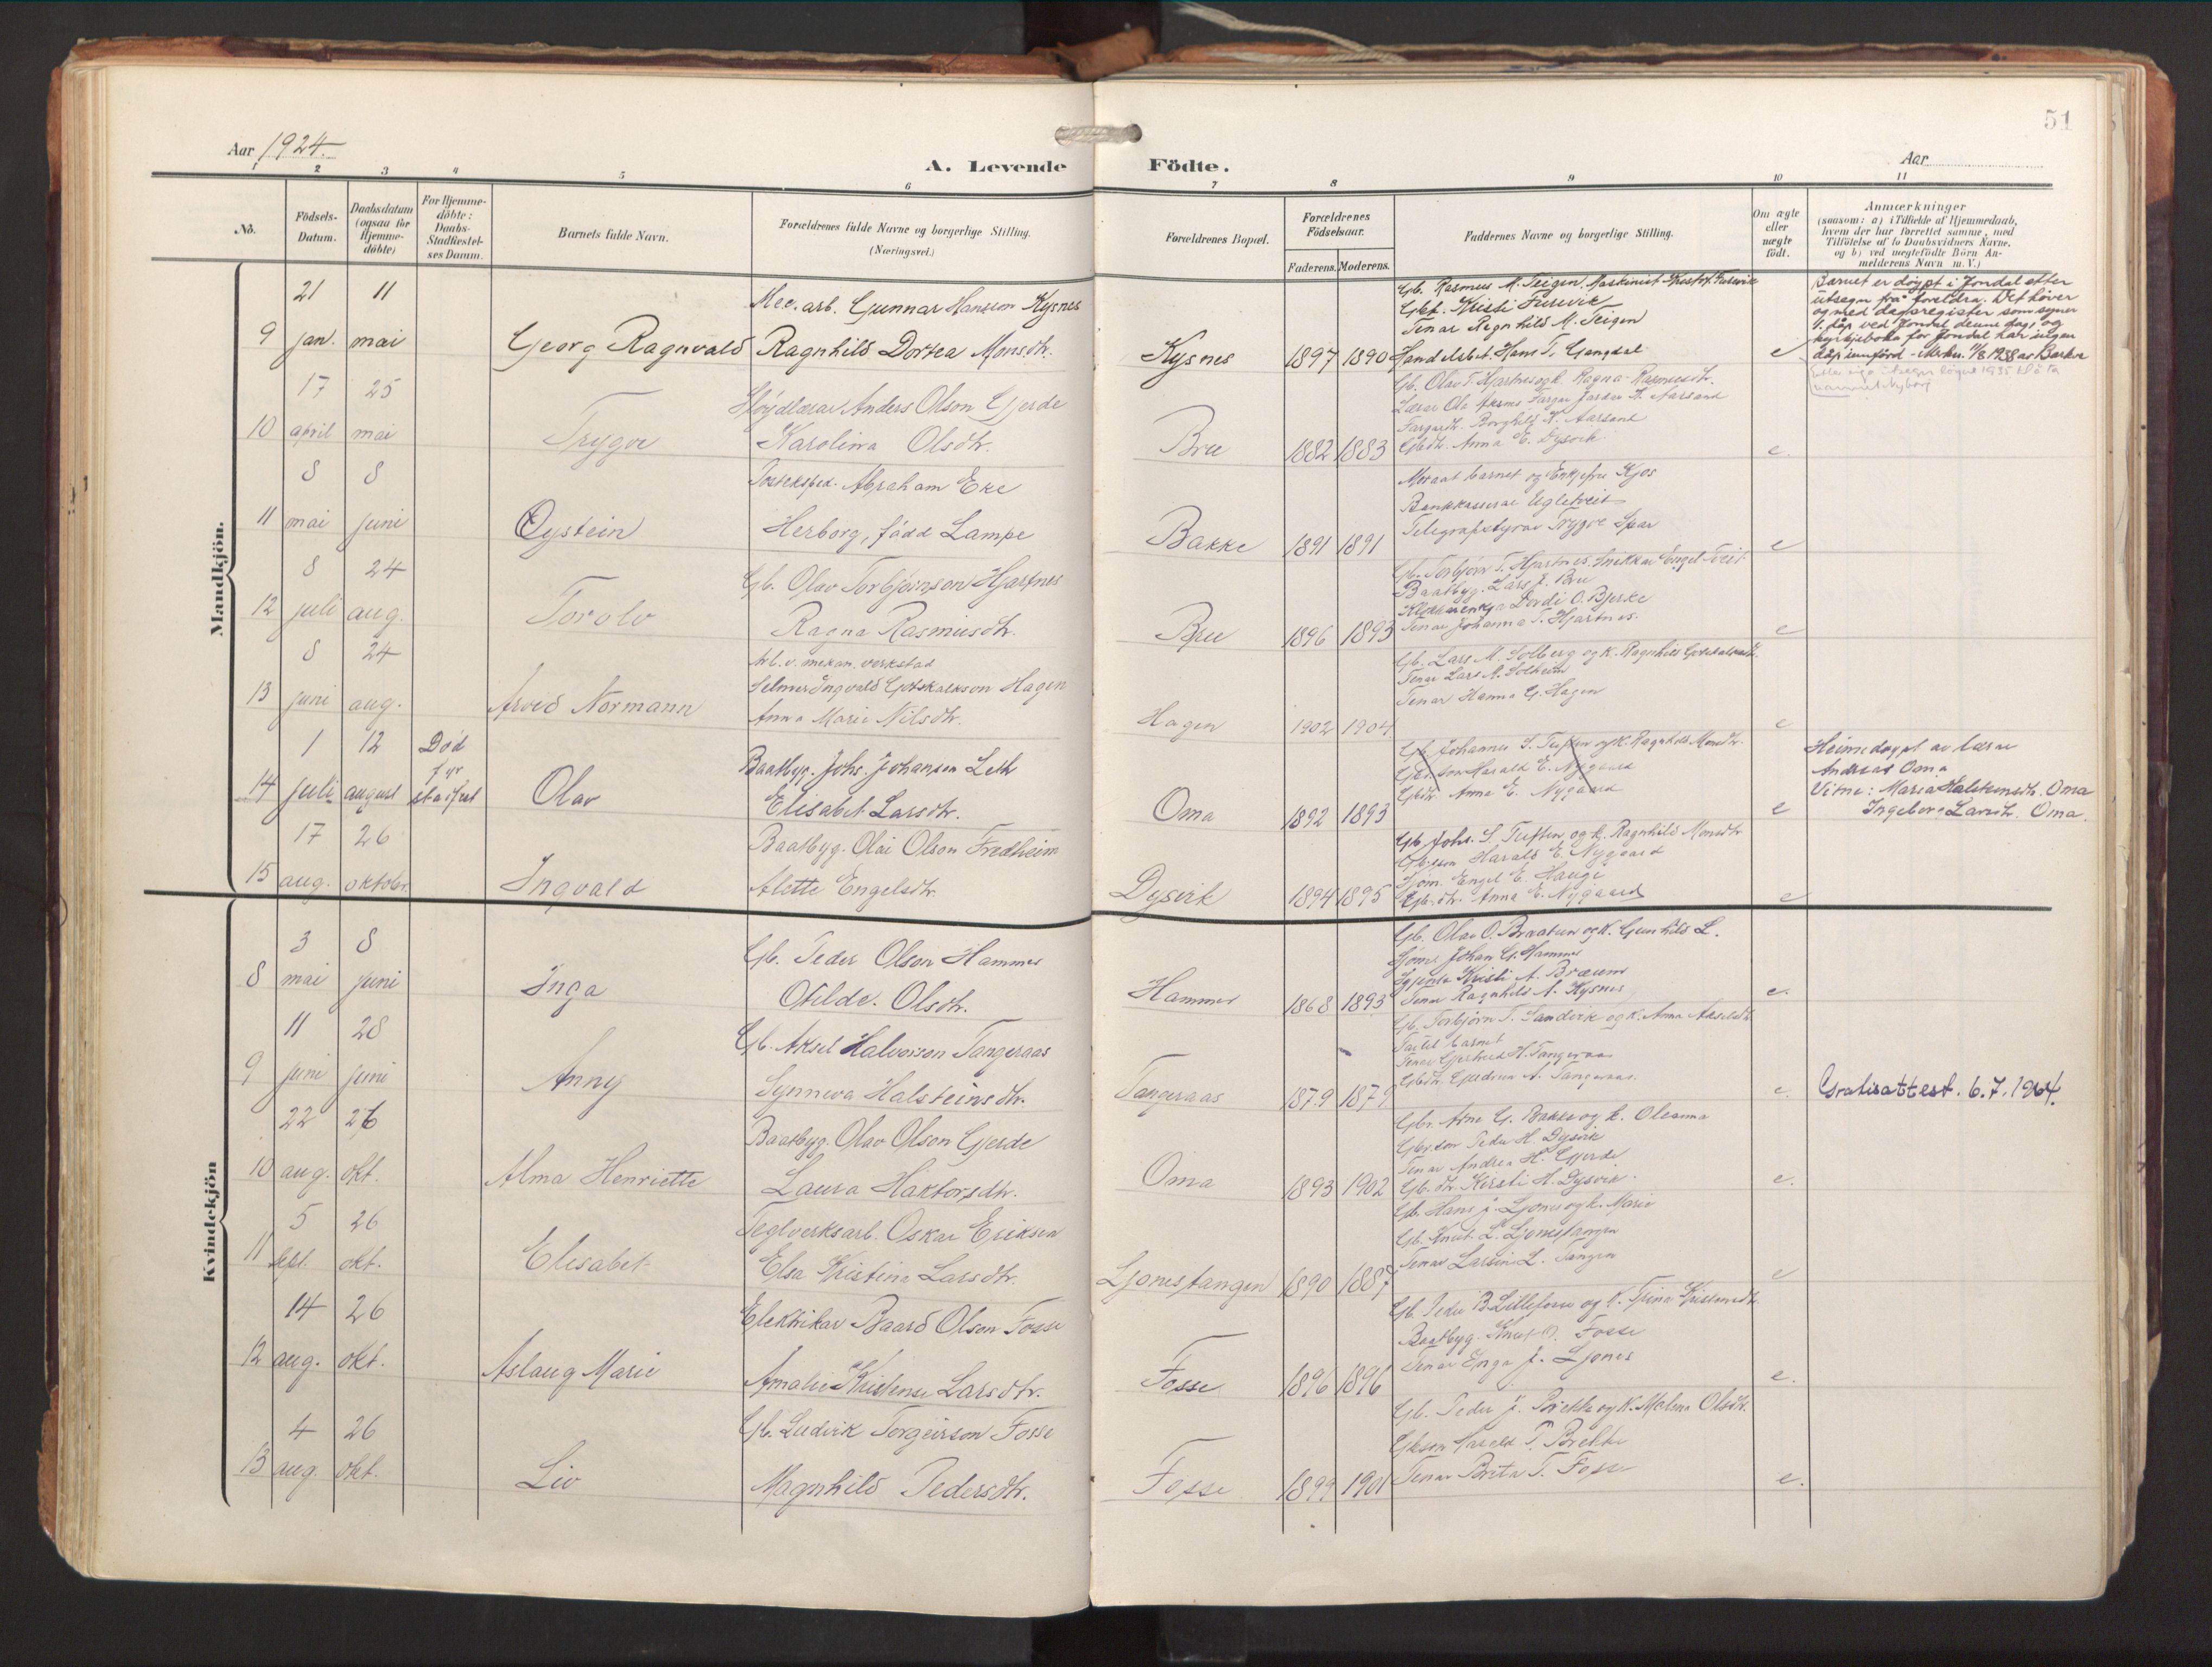 51
Aar 1924.
A. Levende Födte.
Aar
1 2 3 4 5 6 7 8 9 10 11
No.
Födsels-Datum.
Daabsdatum (ogsaa for Hjemme-döbte)
For Hjemme-döbte: Daabs-Stadfæstel-ses Datum.
Barnets fulde Navn.
Forældrenes fulde Navne og borgerlige Stilling.
(Næringsvei.)
Forældrenes Bopæl.
Forældrenes Födselsaar.
Faderens. Moderens.
Faddernes Navne og borgerlige Stilling.
Om ægte eller uægte födt.
Anmærkninger
(saasom: a) i Tilfælde af Hjemmedaab,
hvem der har forrettet samme, med
Tilföielse af to Daabsvidners Navne,
og b) ved uægtefödte Börn An-
melderens Navn m. V.)
Mandkjön.
9 21 jan. 11 mai Georg Ragnvald
Mec. arb. Gunnar Hansson Kysnes
Ragnhild Dortea Monsdtr.
Kysnes 1897 1890
Gb. Rasmus M. Teigen. Maskinist Kristof Furevik
Gbk. Kristi Furevik
Tenar Ragnhild M. Teigen
Handelsbet. Hans T. Gangdal e
Barnet er døypt i Jondal etter
utsegn frå foreldra. Det høver
og med dagsregister som syner
1. dåp ved Jondal denne dag, og
kyrkjeboka for Jondal har ingen
dåp innförd - Merkn. 11/8 1938 av Barkve
10 17 april 25 mai Trygve
Høydlærar Anders Olson Gjerde
Karolina Olsdtr.
Bru 1882 1883
Gb. Olav T. Hjartnes og k. Ragna Rasmusdtr.
Borghild K. Aarsand
Gbdtr. Anna E. Dysvik e.
11 8 mai 8 juni Oystein
Postekspd. Abraham Eke
Herborg, fødd Lampe
Bakke 1891 1891
Bankkasserar Ugletveit
Telegrafstyrar Trygve Spar e
12 8 juli 24 aug. Torolv
Gb. Olav Torbjørnson Hjartnes
Ragna Rasmusdtr.
Bru 1896 1893
Gb. Torbjørn T. Hjartnes. Snekkar Engel Tveit
Baatbyg. Lars J. Bru
Klokkarenkja Dordi O. Bjerke
Tenar Johanna T. Hjartnes. e
13 8 juni 24 aug. Arvid Normann
Arb. v. mekan. verkstad
Selmer Ingvald Gotskalkson Hagen
Anna Marie Nilsdtr.
Hagen 1902 1904
Gb. Lars M. Solberg og k. Ragnhild Gotskalksdtr.
Tenar Lars A. Solheim
Tenar Hanna G. Hagen e
14 1 juli 12 august Død fyr stadfest Olav
Baatbyg. Johs. Johansen Leth
Elisabet Larsdtr.
Oma 1892 1893
Gb. Johannes S. Tuften og k. Ragnhild Monsdtr.
Gbr. son Harald E. Nygaard
Gbdtr. Anna E. Nygaard e
Heimedøypt av lærar
Andreas Oma
Vitne: Maria Halsteinsdtr. Oma
Ingeborg Larsdtr. Oma.
15 17 aug. 26 oktober. Ingvald
Baatbyg. Olai Olson Fredheim
Alette Engelsdtr.
Dysvik 1894 1895
Gb. Johs. S. Tuften og k. Ragnhild Monsdtr
Gb. son Harald E. Nygaard
Sjøm. Engel E. Hauge
Gb. dtr. Anna E. Nygaard e
Kvindekjön
8 3 mai 8 juni Inga
Gb. Peder Olson Hammer
Otilde. Olsdtr.
Hammer 1868 1893
Gb. Olav O. Braatun og k. Gunhild L.
Sjøm. Johan G. Hammer
Kristi A. Bræum
Tenar Ragnhild A. Kysnes e.
9 11 juni 28 juni Anny
Gb. Aksel Halvorson Tangeraas
Synneva Halsteinsdtr.
Tangeraas 1879 1879
Gb. Torbjørn T. Sandvik og k. Anna Akseldtr
Tenar Gjertrud H. Tangeraas
Gbdtr. Gudrun A. Tangeraas. e.
Gratisattest. 6.7.1964.
10 22 aug. 26 okt. Alma Henriette
Baatbyg. Olav Olson Gjerde
Laura Haktorsdtr.
Oma 1893 1902
Gbr. Arne G. Bakke og k. Oleanna
Gbr. son Peder H. Dysvik
Tenar Andrea H. Gjerde
Gb. dtr. Kirsti H. Dysvik. e.
11 5 sept. 26 okt. Elisabet
Teglverksarb. Oskar Eriksen
Elsa Kristina Larsdtr.
Ljonestangen 1890 1887
Gb. Hans J. Ljones og k. Marie
Gb. Knut L. Ljonestangen
Tenar Larsina L. Tangen e
12 14 aug. 26 okt. Aslaug Marie
Elektrikar Baard Olson Fosse
Amalie Kristense Larsdtr.
Fosse 1896 1896
Gb. Peder B. Lillefosse og k. Trina Kristensdtr
Baatbyg. Knut O. Fosse
Tenar Enga J. Ljones e.
13 4 aug. 26 okt. Liv
Gb. Ludvik Torgeirson Fosse
Magnhild Pedersdtr.
Fosse 1899 1901
Gb. Peder J. Brekke og k. Malena Olsdtr.
Gbson Harald P. Brekke
Tenar Brita T. Fosse e.